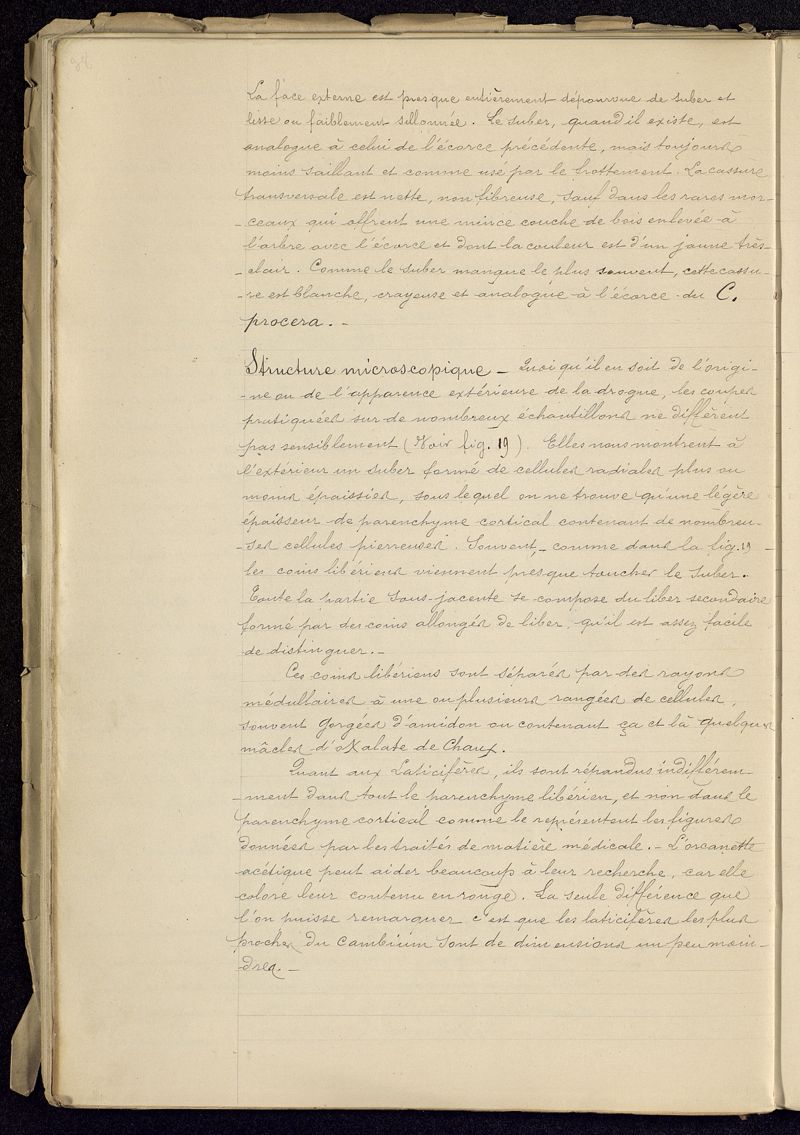 La face externe est presque entièrement dépourvue de suber et
lisse ou faiblement sillonnée. Le suber, quand il existe, est
analogue à celui de l'écorce précédente, mais toujours
moins saillant et comme usé par le frottement. La cassure
transversale est nette, non fibreuse, sauf dans les rares mor-
-ceaux qui offrent une mince couche de bois enlevée à
l'arbre avec l'écorce et dont la couleur est d'un jaune très-
-clair. Comme le suber manque le plus souvent, cette cassu-
-re est blanche, crayeuse et analogue à l'écorce du C.
procera. -
Structure microscopique - Quoi qu'il en soit de l'origi-
-ne ou de l'apparence extérieure de la drogue, les coupes
pratiquées sur de nombreux échantillons ne diffèrent
pas sensiblement (Voir fig. 19). Elles nous montrent à
l'extérieur un suber formé de cellules radiales plus ou
moins épaissies, sous lequel on ne trouve qu'une légère
épaisseur de parenchyme cortical contenant de nombreu-
-ses cellules pierreuses. Souvent, - comme dans la fig. 19 -
les coins libériens viennent presque toucher le suber.
Toute la partie sous-jacente se compose du liber secondaire
formé par des coins allongés de liber, qu'il est assez facile
de distinguer. -
Ces coins libériens sont séparés par des rayons
médullaires à une ou plusieurs rangées de cellules,
souvent gorgées d'amidon ou contenant ça et là quelques
mâcles d'oxalate de Chaux.
Quant aux Laticifères, ils sont répandus indifférem-
-ment dans tout le parenchyme libérien, et non dans le
parenchyme cortical comme le représentent les figures
données par les traités de matière médicale. - L'orcanette
acétique peut aider beaucoup à leur recherche, car elle
colore leur contenu en rouge. La seule différence que
l'on puisse remarquer c'est que les laticifères les plus
proches du cambium sont de dimensions un peu moin-
-dres. -